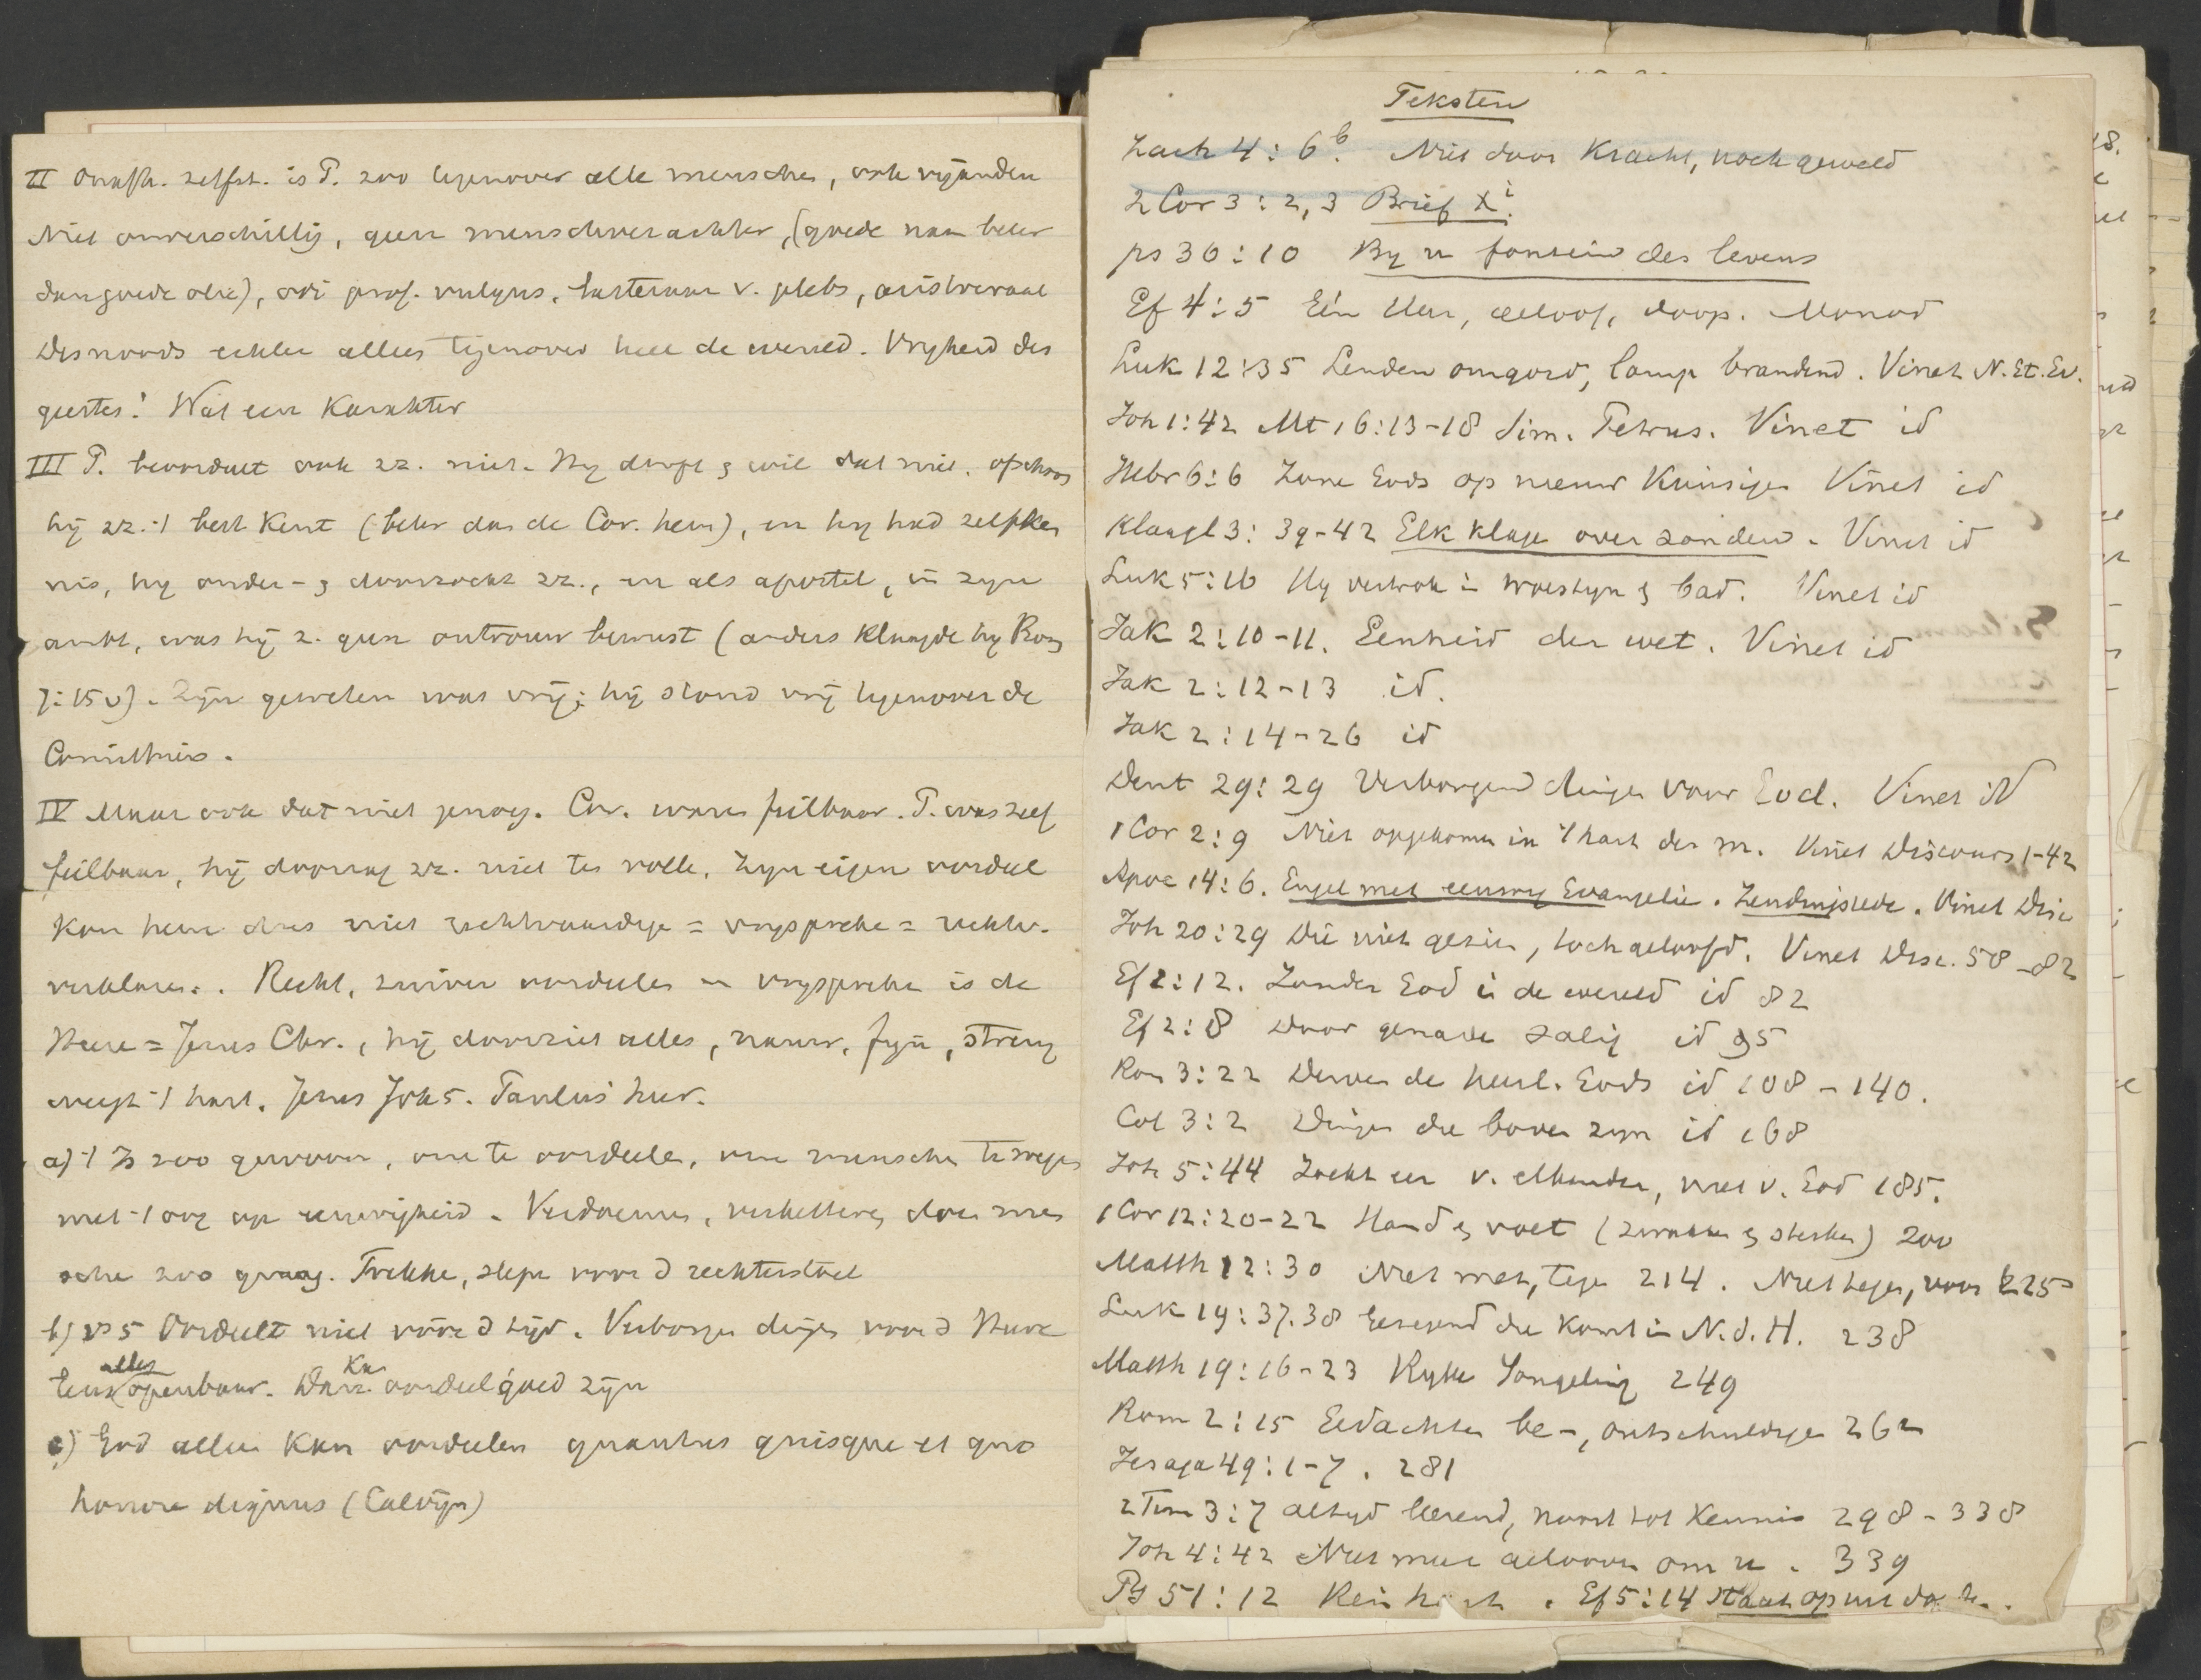 II Onafh. zelfst. is P. zoo tegenover alle menschen, ook vijanden
Niet onverschillig, geen menschverachter, (goede naam beter
dan goede olie), odi prof. vulgus, lasteraar v. plebs, aristocraat
Desnoods echter alleen tegenover heel de wereld. Vrijheid des
geestes! Wat een Karakter
III P. beoordeelt ook zz. niet. Hy durft & wil dat niet. ofschoon
hij zz. 't best kent (beter dan de Cor. hem), en hy had zelfken
nis, hy onder- & doorzocht zz., en als apostel, in zyn
ambt, was hij z. geen ontrouw bewust (anders klaagde hy Rom
7:15v). Zijn geweten was vrij; hij stond vrij tegenover de
Corinthiers.
IV Maar ook dat niet genoeg. Cor. waren feilbaar. P. was zelf
feilbaar, hij doorzag zz. niet ten volle. Zyn eigen oordeel
kan hem dus niet rechtvaardige = vryspreke = rechtv.
verklaren. Recht, zuiver oordeelen en vryspreken is de
Heere = Jezus Chr., hij doorziet alles, nauw, fijn, streng
weegt 't hart. Jezus Joh 5. Paulus hier.
a) 't Is zoo gewoon, om te oordeele, om menschen te wegen
met 't oog op eeuwigheid. Verdoemen, verketteren doen men
schen zoo graag. Trekke, slepe voor d rechterstoel
b) vs 5 Oordeelt niet vóór d tijd. Verborgen dingen voor d Heere
alles Kan
eens openbaar. Dan oordeel goed zijn
c) God alleen kan oordeelen quantus quisque et quo
honore dignus (Calvijn)
Teksten
Zach 4: 6b. Niet door Kracht, noch geweld
2 Cor 3: 2, 3 Brief Xi.
ps 36:10 By u fontein des levens
Ef 4:5 Eén Heer, geloof, doop. Monod
Luk 12:35 Lenden omgord, lamp brandend. Vinet N. Et. Ev.
Joh 1:42 Mt 16:13-18 Sim. Petrus. Vinet id
Hebr 6:6 Zone Gods op nieuw Kruisigen Vinet id
Klaagl 3: 39-42 Elk klage over zonden. Vinet id
Luk 5:16 Hy vertrok in woestyn & bad. Vinet id
Jak 2:10-11. Eenheid der wet. Vinet id
Jak 2:12-13 id.
Jak 2:14-26 id
Deut 29:29 Verborgend dingen voor God. Vinet id
1 Cor 2:9 Niet opgekomen in 't hart der m. Vinet Discours 1-42
Apoc 14:6. Engel met eeuwig Evangelie. Zendingsrede. Vinet Disc
Joh 20:29 Die niet gezien, toch geloofd. Vinet Disc. 58-82
Ef 2:12. Zonder God in de wereld id 82
Ef 2:8 Door genade zalig id 95
Rom 3:22 Derven de heerl. Gods id 108-140.
Col 3:2 Dingen die boven zyn id 168
Joh 5:44 Zoekt eer v. elkander, niet v. God 185.
1 Cor 12:20-22 Hand & voet (zwakken & sterken) 200
Matth 12:30 Niet met, tegen 214. Niet tegen, voor 225
Luk 19:37.38 Gezegend die Komt in N.d.H. 238
Matth 19:16-23 Ryke Jongeling 249
Rom 2:15 Gedachten be-, ontschuldigen 262
Jesaja 49:1-7. 281
2 Tim 3:7 altyd leerend, nooit tot Kennis 298-338
Joh 4:42 Niet meer gelooven om u. 339
Ps 51:12 Rein hart. Ef 5:14 Staat op uit